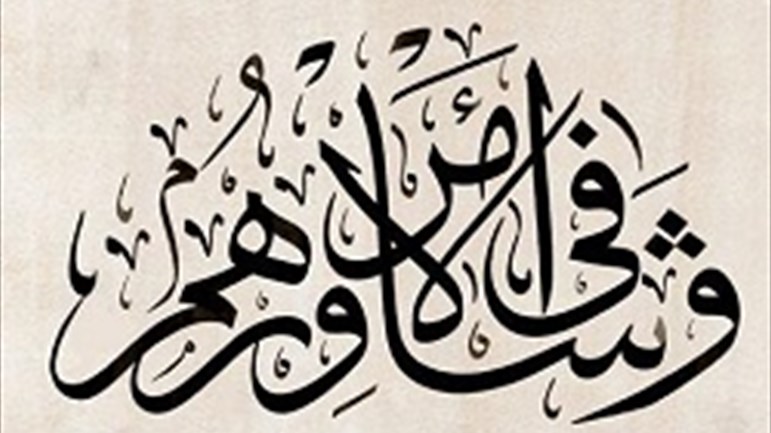 وَشَاوِرْهُمْ فِي الْأَمْرِ